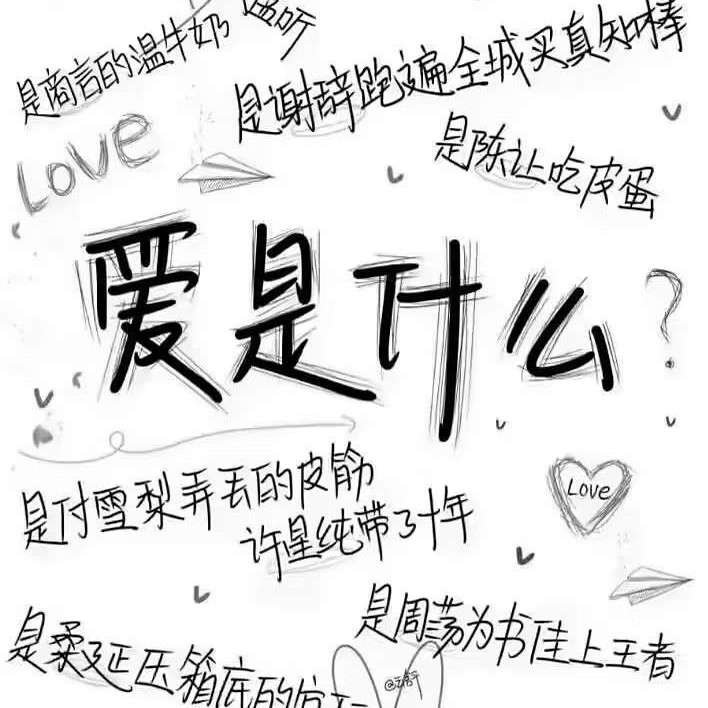 是商言的温牛奶 温听
是谢辞跑遍全城买真知棒
是陈让吃皮蛋
Love
爱是什么?
是付雪梨弄丢的皮筋
许星纯带了十年
Love
是周荡为书佳上王者
是柔延压箱底的